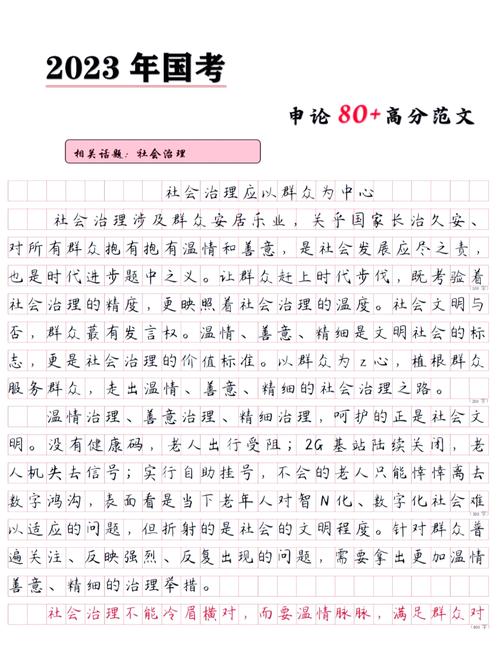 2023 年国考
申论 80+高分范文
相关话题：社会治理
社会治理应以群众为中心
社会治理涉及群众安居乐业，关乎国家长治久安、
对所有群众抱有抱有温情和善意，是社会发展应尽之责，
也是时代进步题中之义。让群众赶上时代步伐，既考验着
社会治理的精度，更映照着社会治理的温度。社会文明与
否，群众最有发言权。温情、善意、精细是文明社会的标
志，更是社会治理的价值标准。以群众为z心，植根群众
服务群众，走出温情、善意、精细的社会治理之路。
温情治理、善意治理、精细治理，呵护的正是社会文
明。没有健康码，老人出行受阻；2G 基站陆续关闭，老
人机失去信号；实行自助挂号，不会的老人只能悻悻离去
数字鸿沟，表面看是当下老年人对智N化、数字化社会难
以适应的问题，但折射的是社会的文明程度。针对群众普
遍关注、反映强烈、反复出现的问题，需要拿出更加温情
善意、精细的治理举措。
社会治理不能冷眉横对，而要温情脉脉，满足群众对